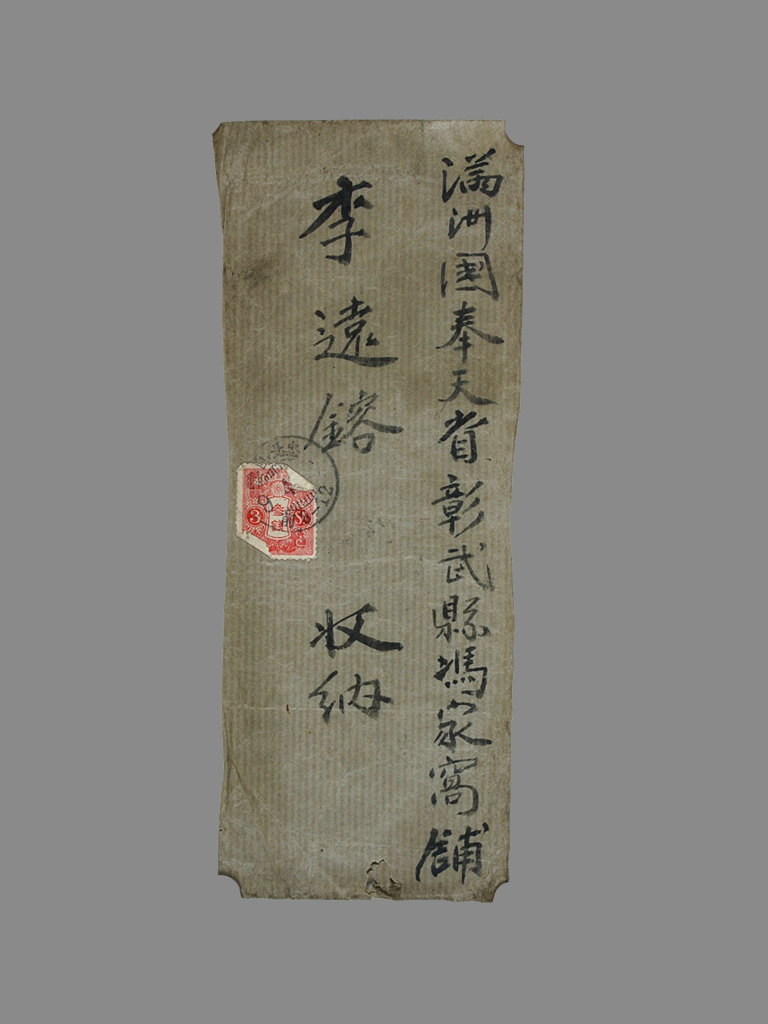 滿洲國奉天省彰武縣馮家窩舖
李遠鎔 收納
3